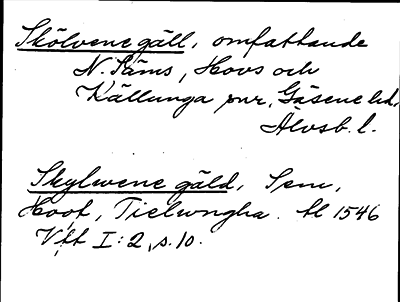 Skölvene gäll, omfattande
N. Säms, Hovs och
Källunga snr, Gäsene hd,
Älvsb. l.
Skylwene gäld, Sem,
Hoof, Tielwngha. tl 1546
Vft I:2, s.10.